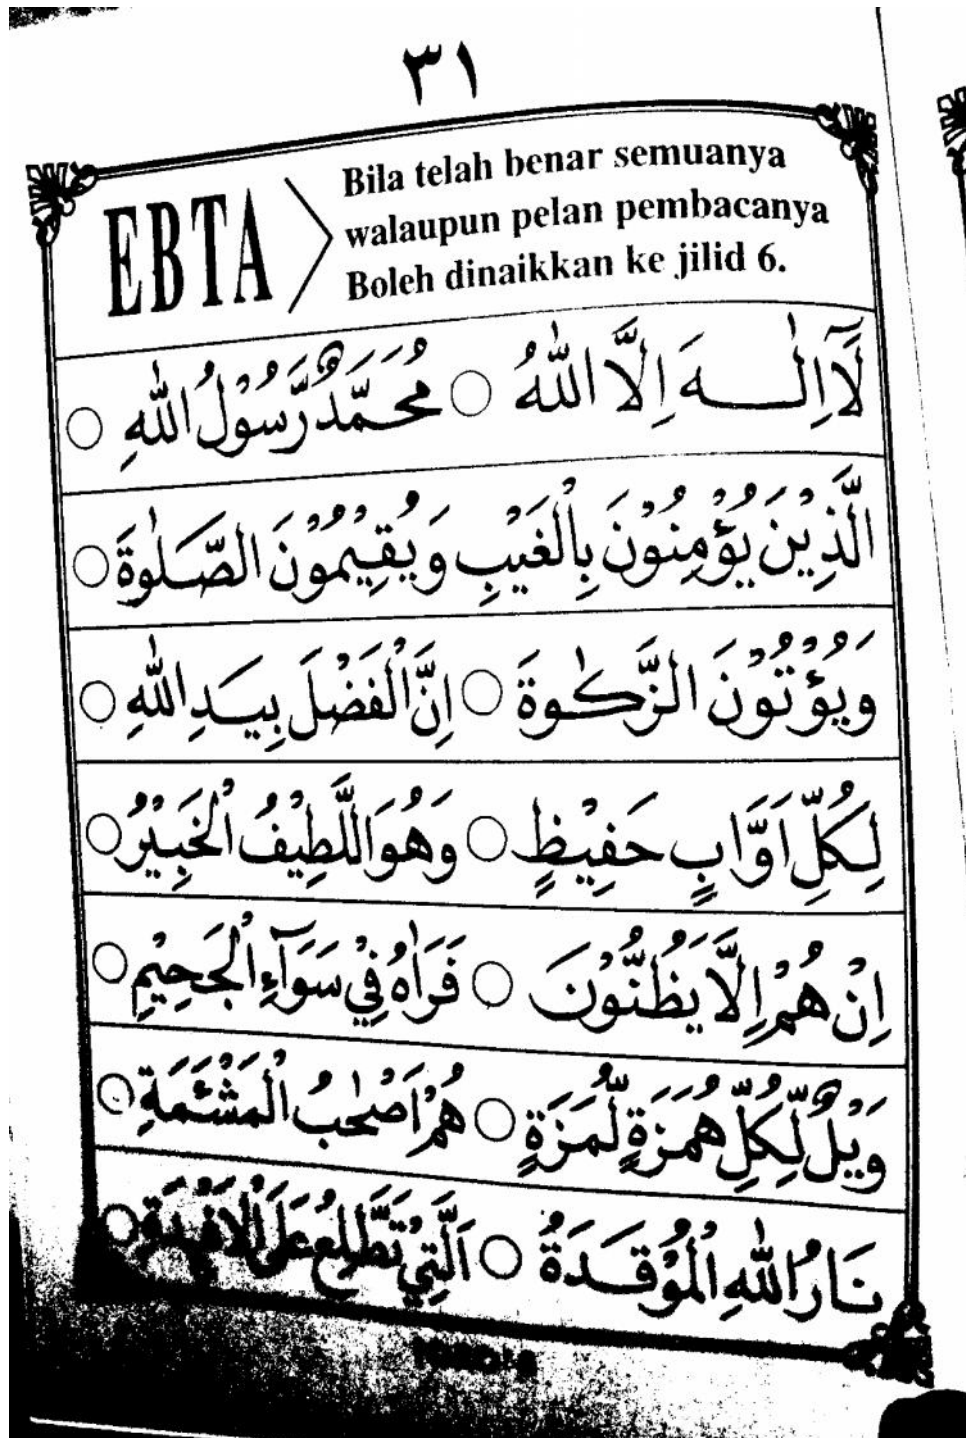 ٣١
EBTA
Bila telah benar semuanya
walaupun pelan pembacanya
Boleh dinaikkan ke jilid 6.
لَآ اِلٰـــهَ اِلَّا اللّٰهُ ○ مُحَمَّدٌ رَّسُوْلُ اللّٰهِ ○
الَّذِيْنَ يُؤْمِنُوْنَ بِالْغَيْبِ وَيُقِيْمُوْنَ الصَّلٰوةَ ○
وَيُؤْتُوْنَ الزَّكٰوةَ ○ اِنَّ الْفَضْلَ بِيَدِ اللّٰهِ ○
لِكُلِّ اَوَّابٍ حَفِيْظٍ ○ وَهُوَ اللَّطِيْفُ الْخَبِيْرُ ○
اِنْ هُمْ اِلَّا يَظُنُّوْنَ ○ فَرَاٰهُ فِيْ سَوَآءِ الْجَحِيْمِ ○
وَيْلٌ لِّكُلِّ هُمَزَةٍ لُّمَزَةٍ ○ هُمْ اَصْحٰبُ الْمَشْئَمَةِ ○
نَارُ اللّٰهِ الْمُوْقَدَةُ ○ اَلَّتِيْ تَطَّلِعُ عَلَى الْاَفْئِدَةِ ○